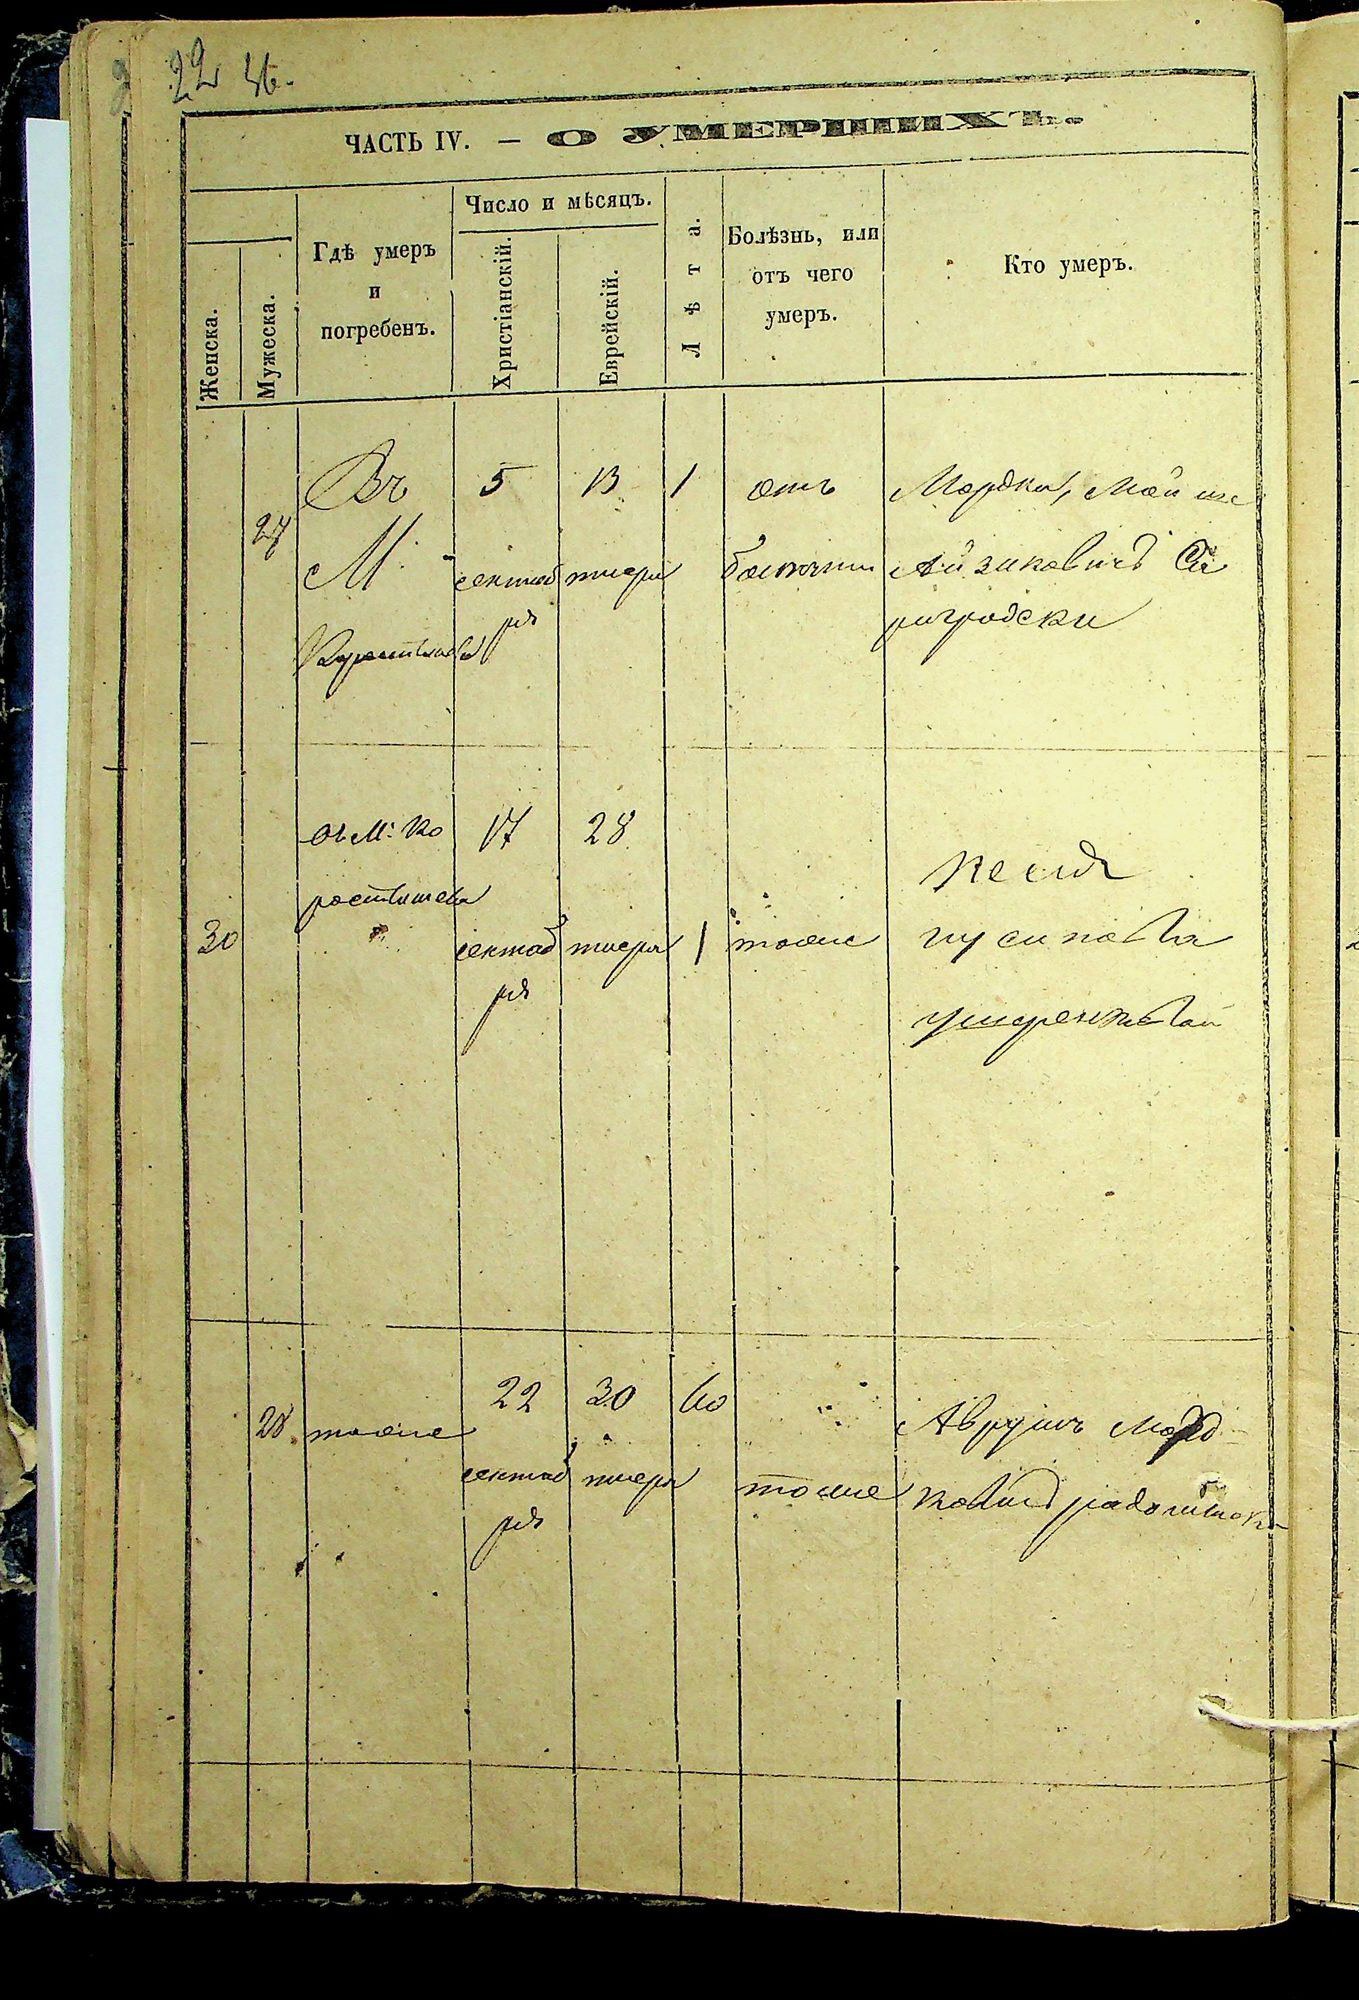 22
ЧАСТЬ IV. — О УМЕРШИХЪ.
Женска.
Мужеска.
Гдѣ умеръ
и
погребенъ.
Число и мѣсяцъ.
Христіанскій.
Еврейскій.
Лѣта.
Болѣзнь, или
отъ чего
умеръ.
Кто умеръ.
27
Въ
М.
5
сентяб
ря
13
тисри
1
отъ
Мордко, Мой ше
Айзиковичъ
30
въ М. Ко
ростишевѣ
17
сентяб
ря
28
тисри
1
тоже
песя
28
тоже
22
сентяб
ря
30
тисри
60
тоже
Аврумъ Морд
ковичъ